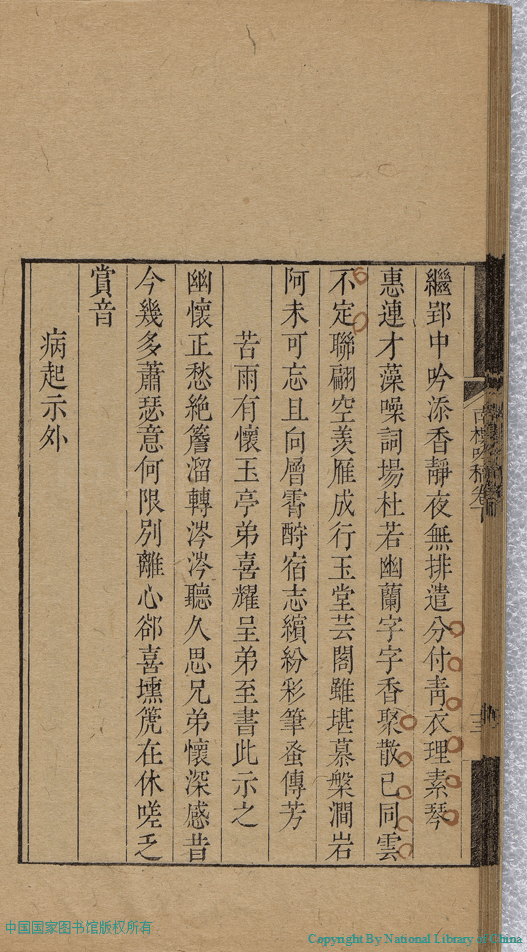 繼郢中吟添香靜夜無排遣分付靑衣理素琴
惠連才藻噪詞場杜若幽蘭字字香聚散已同雲
不定聯翩空羨雁成行玉堂芸閣雖堪慕槃澗岩
阿未可忘且向層霄酧宿志繽紛彩筆蚤傳芳
苦雨有懷玉亭弟喜耀呈弟至書此示之
幽懷正愁絶簷溜轉涔涔聽久思兄弟懷深感昔
今幾多蕭瑟意何限別離心郤喜壎篪在休嗟乏
賞音
病起示外
吟稿卷下
三
中国国家图书馆版权所有
Copyright By National Library of China